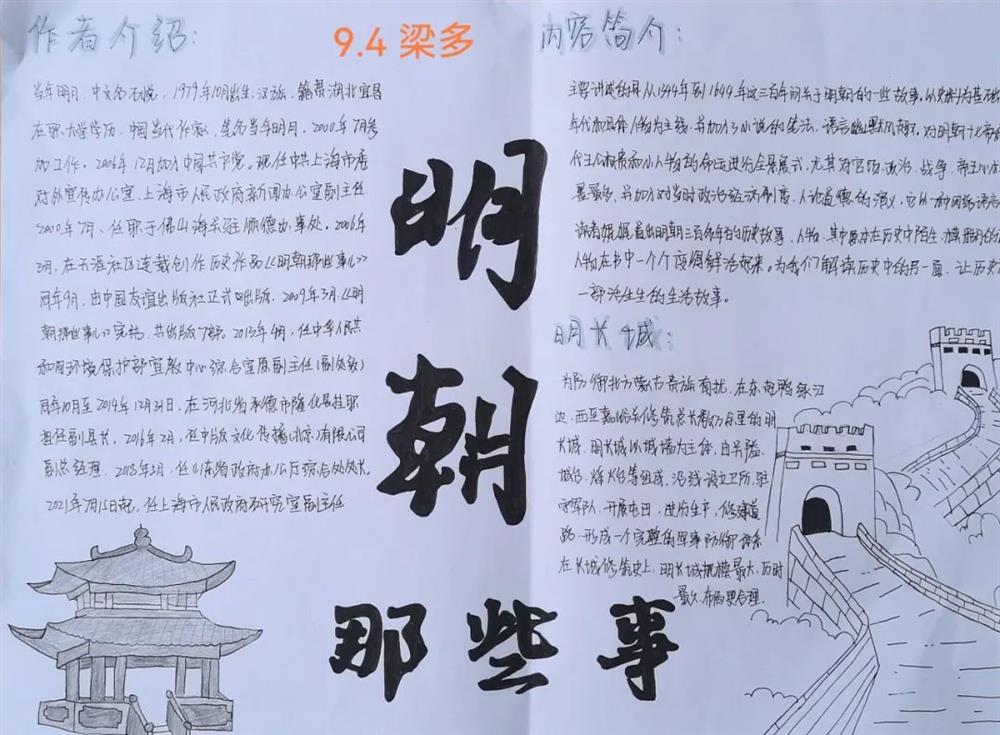 作者介绍:
9.4 梁多
当年明月,中文名石悦,1979年10月出生,汉族,籍贯湖北宜昌
在职大学学历,中国当代作家,笔名当年明月。2000年7月参
加工作。2006年12月加入中国共产党。现任中共上海市委
对外宣传办公室、上海市人民政府新闻办公室副主任
2000年7月、任职于佛山海关驻顺德办事处。2006年
3月,在天涯社区连载创作历史作品《明朝那些事儿》
同年9月,由中国友谊出版社正式出版,2009年3月《明
朝那些事儿》完结,共出版7部。2013年4月,任中华人民共
和国环境保护部宣教中心综合室原副主任(副处级)
同年10月至2014年12月31日,在河北省承德市隆化县挂职
担任副县长。2016年2月,任中版文化传播(北京)有限公司
副总经理。2018年3月,任山东省政府办公厅综合处处长。
2021年7月15日起,任上海市人民政府研究室副主任
明
朝
那些事
内容简介:
主要讲述的是从1344年到1644年这三百年间关于明朝的一些故事。以史料为基石
年代和具体人物为主线,并加入了小说的笔法,语言幽默风趣。对明朝十七帝
代王公权贵和小人物的命运进行全景展示,尤其对官场、政治、战争、帝王心术
墨最多,并加入对当时政治经济制度,人伦道德的演义。它以一种网络语言
读者娓娓道出明朝三百多年的历史故事、人物。其中原本在历史中陌生、模糊的
人物在书中一个个变得鲜活起来。为我们解读历史中的另一面,让历史
一部活生生的生活故事。
明长城:
为防御北方蒙古贵族南扰,在东起鸭绿江
边,西至嘉峪关修筑总长数万里的明
长城,明长城以城墙为主体,由关隘、
城台、烽火台等组成,沿线设立卫所,驻
军队,开展屯田,进行生产,修建道
路,形成一个完整的军事防御体系
在长城修筑史上,明长城规模最大,历时
最久,布局更合理。